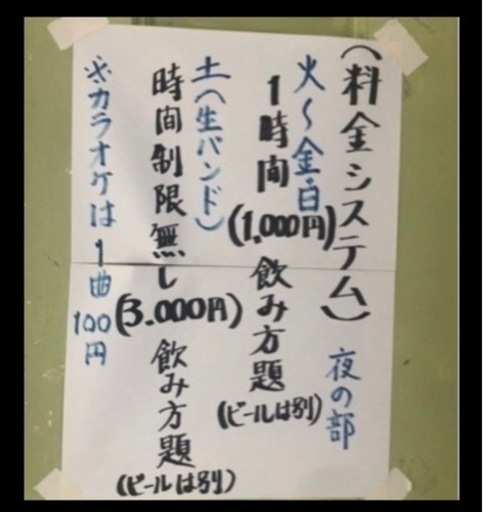 (料金システム) 夜の部
火~金・日
1時間(1,000円)飲み方題
(ビールは別)
土(生バンド)
時間制限無し(3.000円)飲み方題
(ビールは別)
※カラオケは1曲100円